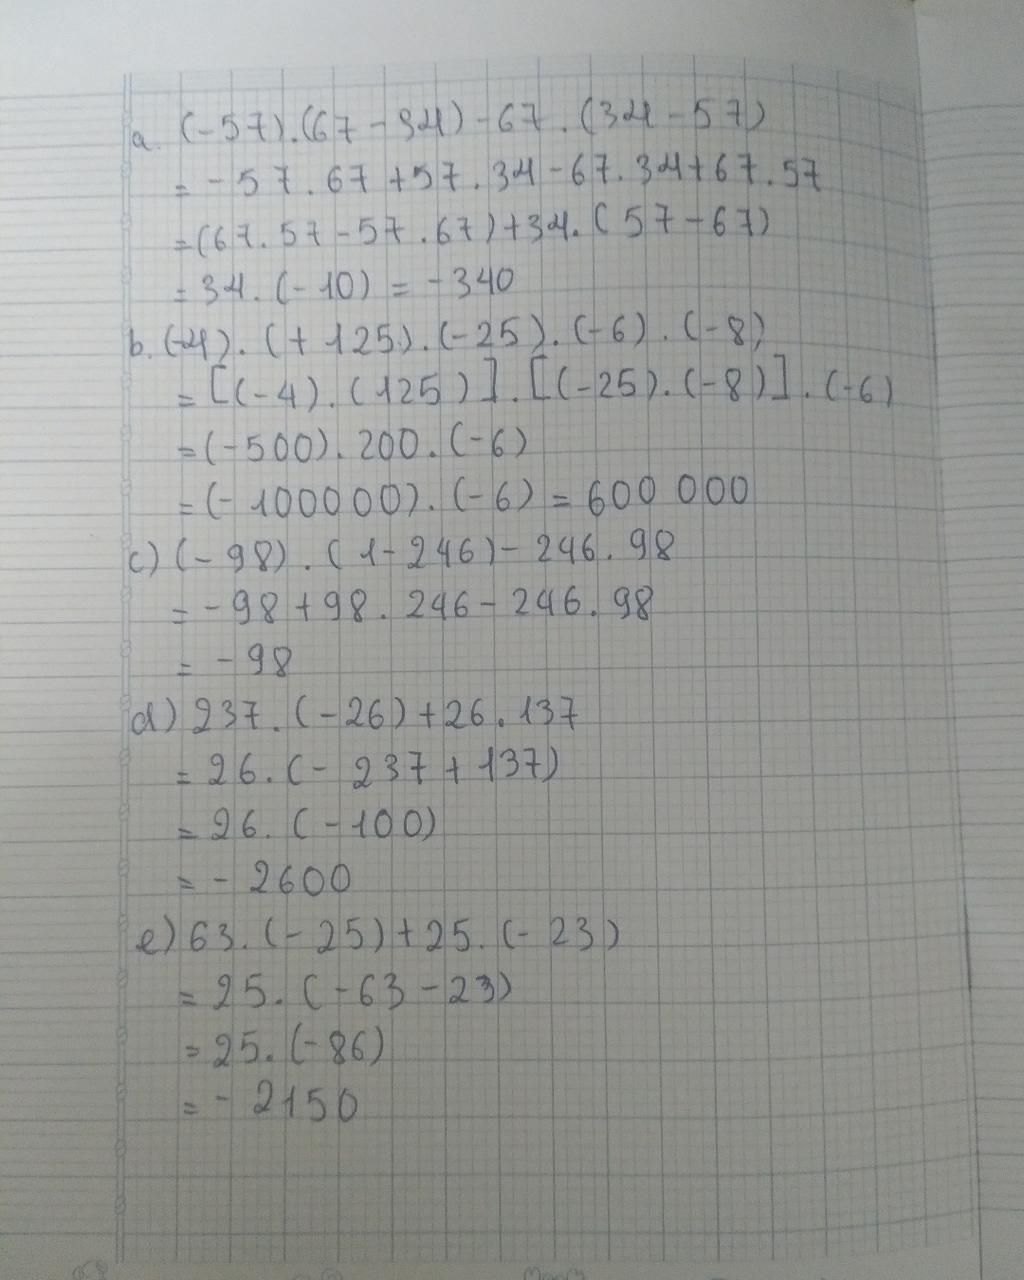 a. (-57).(67-34)-67.(34-57)
= -57.67+57.34-67.34+67.57
=(67.57-57.67)+34.(57-67)
= 34.(-10) = -340
b. (-4).(+125).(-25).(-6).(-8)
= [(-4).(125)].[(-25).(-8)].(-6)
=(-500).200.(-6)
=(-100000).(-6) = 600 000
c) (-98).(1-246)-246.98
= -98+98.246-246.98
= -98
d) 237.(-26)+26.137
= 26.(-237+137)
= 26.(-100)
= -2600
e) 63.(-25)+25.(-23)
= 25.(-63-23)
= 25.(-86)
= -2150